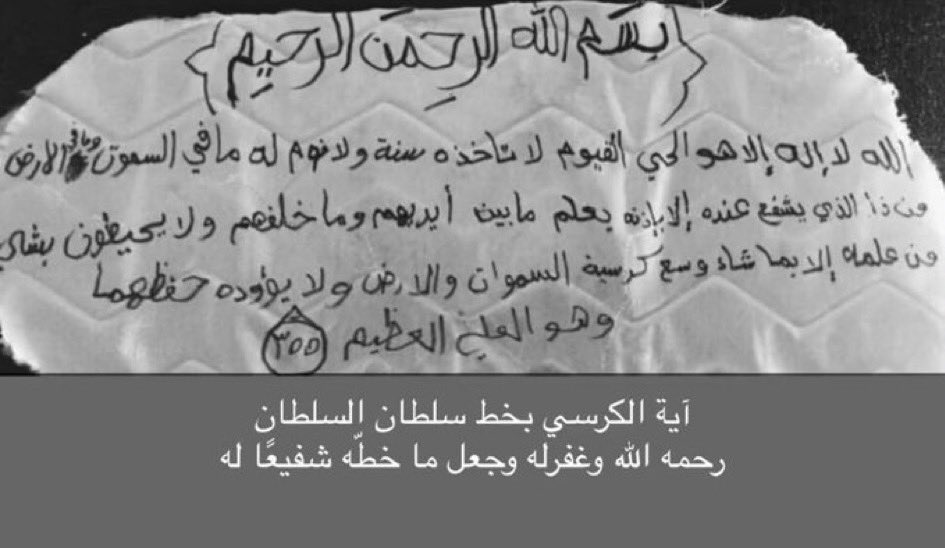 {بسم الله الرحمن الرحيم}
الله لا إله إلا هو الحي القيوم لا تاخذه سنة ولا نوم له ما في السموت وما في الارض
من ذا الذي يشفع عنده إلا بإذنه يعلم ما بين أيديهم وما خلفهم ولا يحيطون بشي
من علمه إلا بما شاء وسع كرسية السموات والارض ولا يؤوده حفظهما
وهو العلي العظيم ٣٥٥
آية الكرسي بخط سلطان السلطان
رحمه الله وغفرله وجعل ما خطّه شفيعًا له